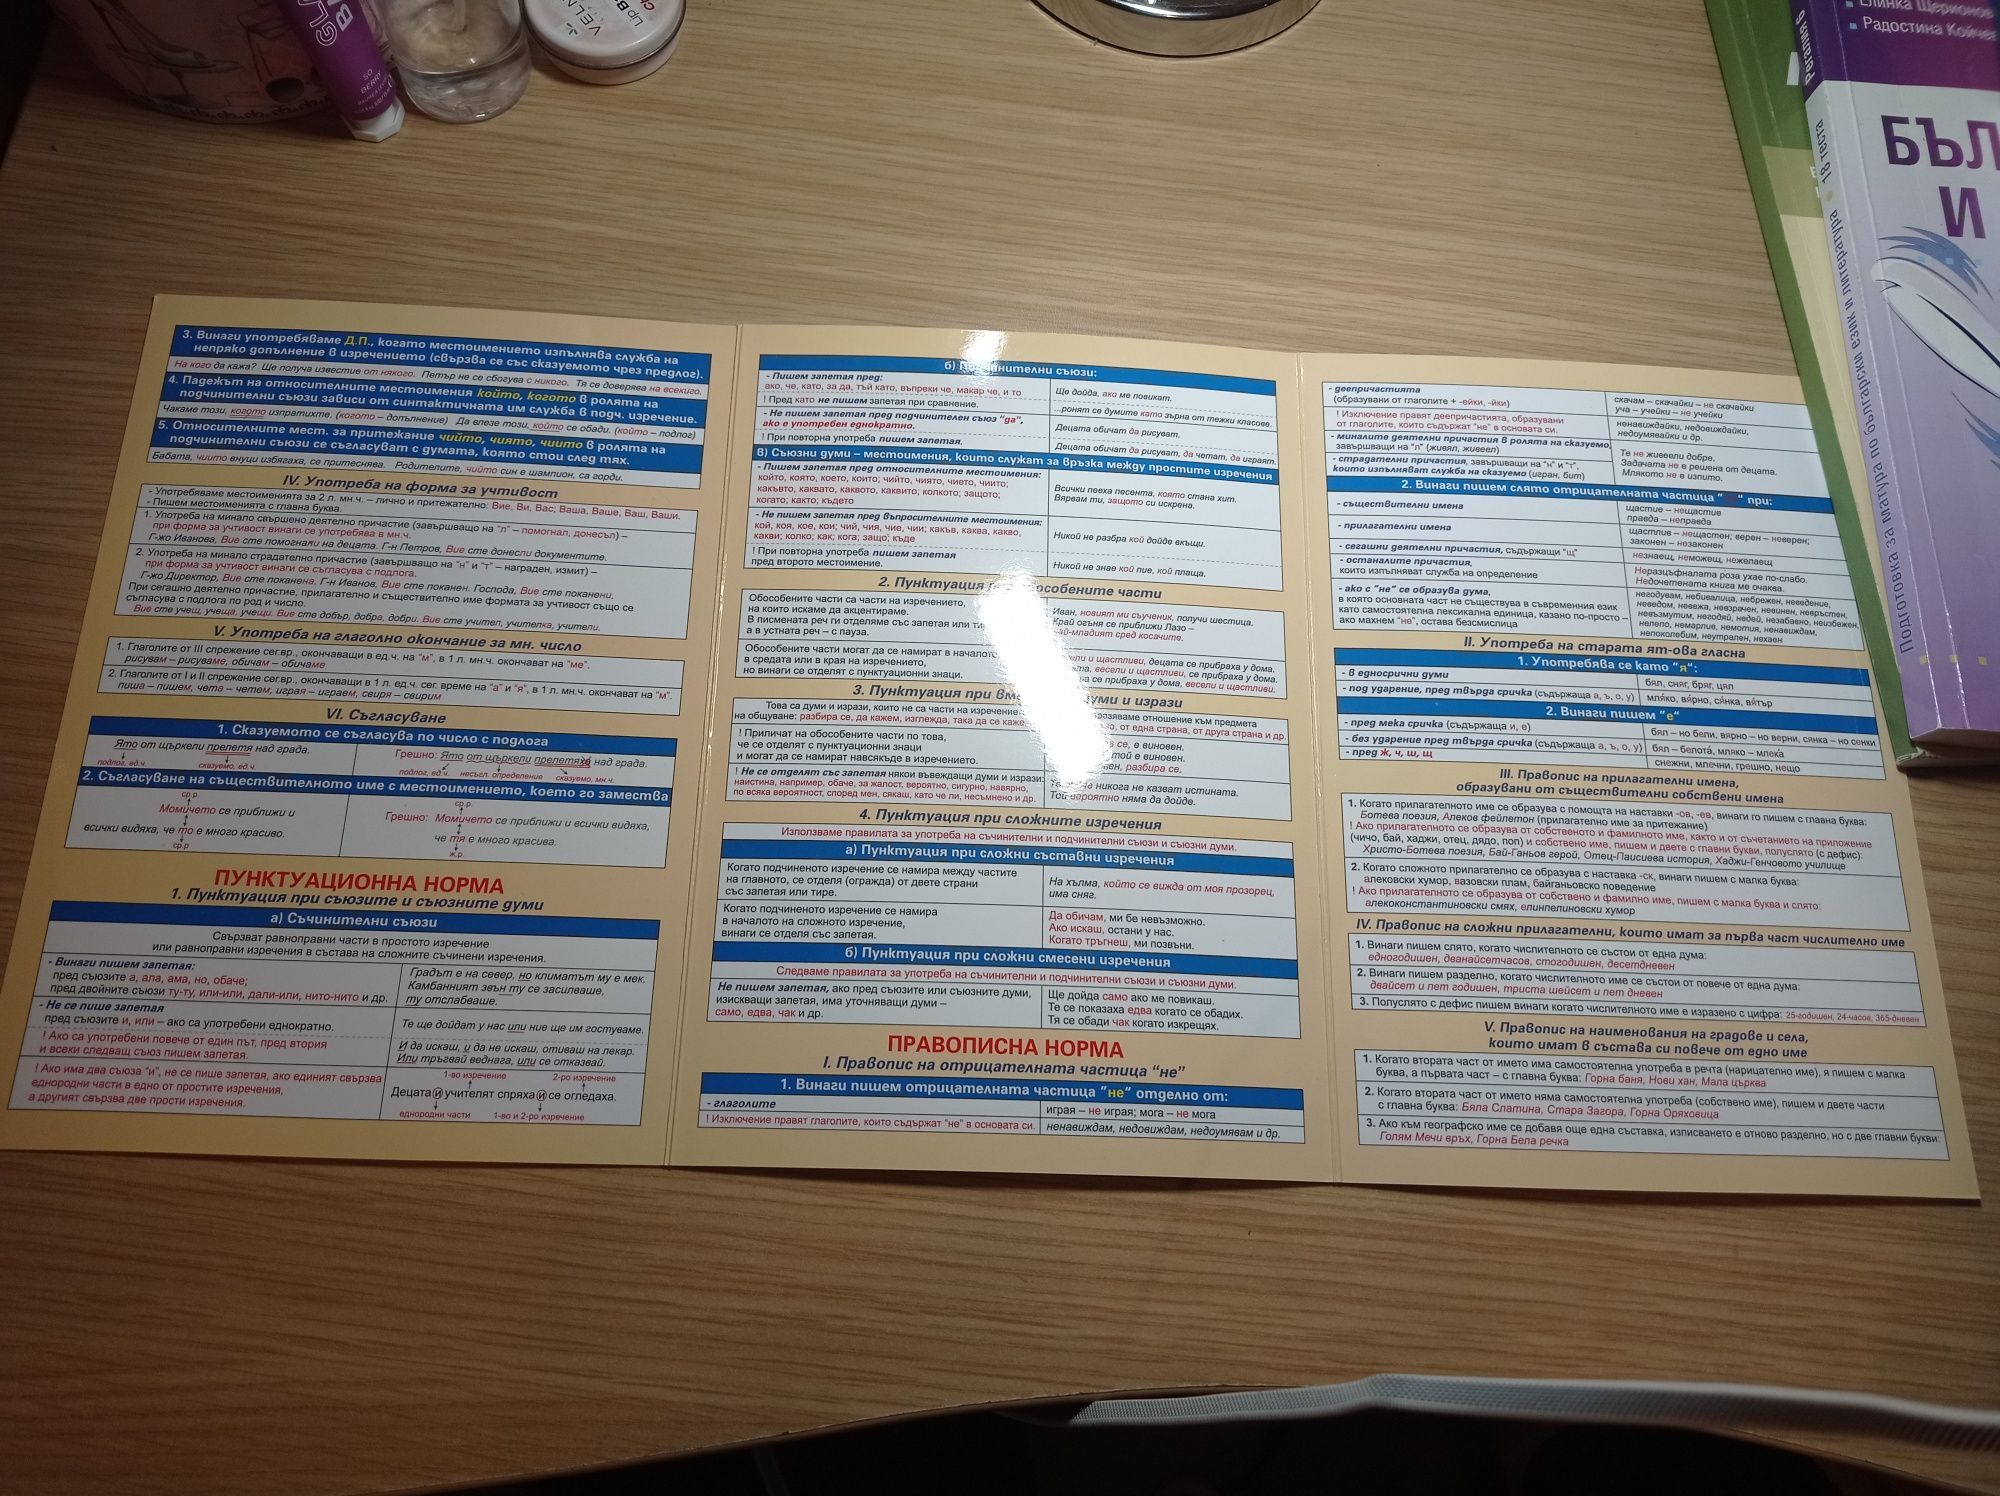 GLA
SO
BERRY
VELN
Lip B
3. Винаги употребяваме Д.П., когато местоимението изпълнява служба на
непряко допълнение в изречението (свързва се със сказуемото чрез предлог).
На кого да кажа? Ще получа известие от някого. Петър не се сбогува с никого. Тя се доверява на всекиго.
4. Падежът на относителните местоимения който, когото в ролята на
подчинителни съюзи зависи от синтактичната им служба в подч. изречение.
Чакаме този, когото изпратихте. (когото – допълнение) Да влезе този, който се обади. (който – подлог)
5. Относителните мест. за притежание чийто, чиято, чиито в ролята на
подчинителни съюзи се съгласуват с думата, която стои след тях.
Бабата, чиито внуци избягаха, се притеснява. Родителите, чийто син е шампион, са горди.
IV. Употреба на форма за учтивост
- Употребяваме местоименията за 2 л. мн.ч. – лично и притежателно: Вие, Ви, Вас; Ваша, Ваше, Ваш, Ваши.
- Пишем местоименията с главна буква.
1. Употреба на минало свършено деятелно причастие (завършващо на "л" – помогнал, донесъл) –
при форма за учтивост винаги се употребява в мн.ч.
Г-жо Иванова, Вие сте помогнали на децата. Г-н Петров, Вие сте донесли документите.
2. Употреба на минало страдателно причастие (завършващо на "н" и "т" – награден, измит) –
при форма за учтивост винаги се съгласува с подлога.
Г-жо Директор, Вие сте поканена. Г-н Иванов, Вие сте поканен. Господа, Вие сте поканени.
При сегашно деятелно причастие, прилагателно и съществително име формата за учтивост също се
съгласува с подлога по род и число.
Вие сте учещ, учеща, учещи. Вие сте добър, добра, добри. Вие сте учител, учителка, учители.
V. Употреба на глаголно окончание за мн. число
1. Глаголите от III спрежение сег.вр., окончаващи в ед.ч. на "м", в 1 л. мн.ч. окончават на "ме".
рисувам – рисуваме, обичам – обичаме
2. Глаголите от I и II спрежение сег.вр., окончаващи в 1 л. ед.ч. сег. време на "а" и "я", в 1 л. мн.ч. окончават на "м".
пиша – пишем, чета – четем, играя – играем, свиря – свирим
VI. Съгласуване
1. Сказуемото се съгласува по число с подлога
Ято от щъркели прелетя над града.
подлог, ед.ч. сказуемо, ед.ч.
Грешно: Ято от щъркели прелетяха над града.
подлог, ед.ч. несъгл. определение сказуемо, мн.ч.
2. Съгласуване на съществителното име с местоимението, което го замества
ср.р.
Момичето се приближи и
всички видяха, че то е много красиво.
ср.р
ср.р.
Грешно: Момичето се приближи и всички видяха,
че тя е много красива.
ж.р.
ПУНКТУАЦИОННА НОРМА
1. Пунктуация при съюзите и съюзните думи
а) Съчинителни съюзи
Свързват равноправни части в простото изречение
или равноправни изречения в състава на сложните съчинени изречения.
- Винаги пишем запетая:
пред съюзите а, ала, ама, но, обаче;
пред двойните съюзи ту-ту, или-или, дали-или, нито-нито и др.
Градът е на север, но климатът му е мек.
Камбанният звън ту се засилваше,
ту отслабваше.
- Не се пише запетая
пред съюзите и, или – ако са употребени еднократно.
Те ще дойдат у нас или ние ще им гостуваме.
! Ако са употребени повече от един път, пред втория
и всеки следващ съюз пишем запетая.
И да искаш, и да не искаш, отиваш на лекар.
Или тръгвай веднага, или се отказвай.
! Ако има два съюза "и", не се пише запетая, ако единият свързва
еднородни части в едно от простите изречения,
а другият свързва две прости изречения.
1-во изречение 2-ро изречение
Децата и учителят спряха и се огледаха.
еднородни части 1-во и 2-ро изречение
б) Подчинителни съюзи:
- Пишем запетая пред:
ако, че, като, за да, тъй като, въпреки че, макар че, и то
Ще дойда, ако ме повикат.
! Пред като не пишем запетая при сравнение.
...ронят се думите като зърна от тежки класове.
- Не пишем запетая пред подчинителен съюз "да",
ако е употребен еднократно.
Децата обичат да рисуват.
! При повторна употреба пишем запетая.
Децата обичат да рисуват, да четат, да играят.
в) Съюзни думи – местоимения, които служат за връзка между простите изречения
- Пишем запетая пред относителните местоимения:
който, която, което, които; чийто, чиято, чието, чиито;
какъвто, каквато, каквото, каквито; колкото; защото;
когато; както; където
Всички пееха песента, която стана хит.
Вярвам ти, защото си искрена.
- Не пишем запетая пред въпросителните местоимения:
кой, коя, кое, кои; чий, чия, чие, чии; какъв, каква, какво,
какви; колко; как; кога; защо; къде
Никой не разбра кой дойде вкъщи.
! При повторна употреба пишем запетая
пред второто местоимение.
Никой не знае кой пие, кой плаща.
2. Пунктуацияособени части
Обособените части са части на изречението,
на които искаме да акцентираме.
В писмената реч ги отделяме със запетая или ти
а в устната реч – с пауза.
Иван, новият ми съученик, получи шестица.
Край огъня се приближи Лазо –
най-младият сред косачите.
Обособените части могат да се намират в началото
в средата или в края на изречението,
но винаги се отделят с пунктуационни знаци.
ели и щастливи, децата се прибраха у дома.
та, весели и щастливи, се прибраха у дома.
се прибраха у дома, весели и щастливи.
3. Пунктуация при вм думи и изрази
Това са думи и изрази, които не са части на изречението розяваме отношение към предмета
на общуване: разбира се, да кажем, изглежда, така да се каже, во, от една страна, от друга страна и др.
! Приличат на обособените части по това,
че се отделят с пунктуационни знаци
и могат да се намират навсякъде в изречението.
се, е виновен.
той е виновен.
вен, разбира се.
! Не се отделят със запетая някои въвеждащи думи и изрази:
наистина, например, обаче, за жалост, вероятно, сигурно, навярно,
по всяка вероятност, според мен, сякаш, като че ли, несъмнено и др.
никога не казват истината.
Той вероятно няма да дойде.
4. Пунктуация при сложните изречения
Използваме правилата за употреба на съчинителни и подчинителни съюзи и съюзни думи.
а) Пунктуация при сложни съставни изречения
Когато подчиненото изречение се намира между частите
на главното, се отделя (огражда) от двете страни
със запетая или тире.
На хълма, който се вижда от моя прозорец,
има сняг.
Когато подчиненото изречение се намира
в началото на сложното изречение,
винаги се отделя със запетая.
Да обичам, ми бе невъзможно.
Ако искаш, остани у нас.
Когато тръгнеш, ми позвъни.
б) Пунктуация при сложни смесени изречения
Следваме правилата за употреба на съчинителни и подчинителни съюзи и съюзни думи.
Не пишем запетая, ако пред съюзите или съюзните думи,
изискващи запетая, има уточняващи думи –
само, едва, чак и др.
Ще дойда само ако ме повикаш.
Те се показаха едва когато се обадих.
Тя се обади чак когато изкрещях.
ПРАВОПИСНА НОРМА
I. Правопис на отрицателната частица "не"
1. Винаги пишем отрицателната частица "не" отделно от:
- глаголите
играя – не играя; мога – не мога
! Изключение правят глаголите, които съдържат "не" в основата си.
ненавиждам, недовиждам, недоумявам и др.
- деепричастията
(образувани от глаголите + -ейки, -йки)
скачам – скачайки – не скачайки
уча – учейки – не учейки
! Изключение правят деепричастията, образувани
от глаголите, които съдържат "не" в основата си.
ненавиждайки, недовиждайки,
недоумявайки и др.
- миналите деятелни причастия в ролята на сказуемо,
завършващи на "л" (живял, живеел)
- страдателни причастия, завършващи на "н" и "т",
които изпълняват служба на сказуемо (игран, бит)
Те не живеели добре.
Задачата не е решена от децата.
Млякото не е изпито.
2. Винаги пишем слято отрицателната частица "не" при:
- съществителни имена
щастие – нещастие
правда – неправда
- прилагателни имена
щастлив – нещастен; верен – неверен;
законен – незаконен
- сегашни деятелни причастия, съдържащи "щ"
незнаещ, неможещ, нежелаещ
- останалите причастия,
които изпълняват служба на определение
Неразцъфналата роза ухае по-слабо.
Недочетената книга ме очаква.
- ако с "не" се образува дума,
в която основната част не съществува в съвременния език
като самостоятелна лексикална единица, казано по-просто –
ако махнем "не", остава безсмислица
негодувам, небивалица, небрежен, неведение,
неведом, невежа, невзрачен, невинен, невръстен,
невъзмутим, негодяй, недей, незабавно, неизбежен,
нелепо, немарлив, немотия, ненавиждам,
непоколебим, неутрален, нехаен
II. Употреба на старата ят-ова гласна
1. Употребява се като "я":
- в едносрични думи
бял, сняг, бряг, цял
- под ударение, пред твърда сричка (съдържаща а, ъ, о, у)
мляко, вярно, сянка, вятър
2. Винаги пишем "е"
- пред мека сричка (съдържаща и, е)
бял – но бели, вярно – но верни, сянка – но сенки
- без ударение пред твърда сричка (съдържаща а, ъ, о, у)
бял – белота, мляко – млека
- пред ж, ч, ш, щ
снежни, млечни, грешно, нещо
III. Правопис на прилагателни имена,
образувани от съществителни собствени имена
1. Когато прилагателното име се образува с помощта на наставки -ов, -ев, винаги го пишем с главна буква:
Ботева поезия, Алеков фейлетон (прилагателно име за притежание)
! Ако прилагателното се образува от собственото и фамилното име, както и от съчетанието на приложение
(чичо, бай, хаджи, отец, дядо, поп) и собствено име, пишем и двете с главни букви, полуслято (с дефис):
Христо-Ботева поезия, Бай-Ганьов герой, Отец-Паисиева история, Хаджи-Генчовото училище
2. Когато сложното прилагателно се образува с наставка -ск, винаги пишем с малка буква:
алековски хумор, вазовски плам, байганьовско поведение
! Ако прилагателното се образува от собствено и фамилно име, пишем с малка буква и слято:
алекоконстантиновски смях, елинпелиновски хумор
IV. Правопис на сложни прилагателни, които имат за първа част числително име
1. Винаги пишем слято, когато числителното се състои от една дума:
едногодишен, дванайсетчасов, стогодишен, десетдневен
2. Винаги пишем разделно, когато числителното име се състои от повече от една дума:
двайсет и пет годишен, триста шейсет и пет дневен
3. Полуслято с дефис пишем винаги когато числителното име е изразено с цифра: 25-годишен, 24-часов, 365-дневен
V. Правопис на наименования на градове и села,
които имат в състава си повече от едно име
1. Когато втората част от името има самостоятелна употреба в речта (нарицателно име), я пишем с малка
буква, а първата част – с главна буква: Горна баня, Нови хан, Мала църква
2. Когато втората част от името няма самостоятелна употреба (собствено име), пишем и двете части
с главна буква: Бяла Слатина, Стара Загора, Горна Оряховица
3. Ако към географско име се добавя още една съставка, изписването е отново разделно, но с две главни букви:
Голям Мечи връх, Горна Бела речка
Елинка Щерионов
Радостина Койчев
БЪЛ
И
Регалия 6
Подготовка за матура по български език и литература • 18 теста